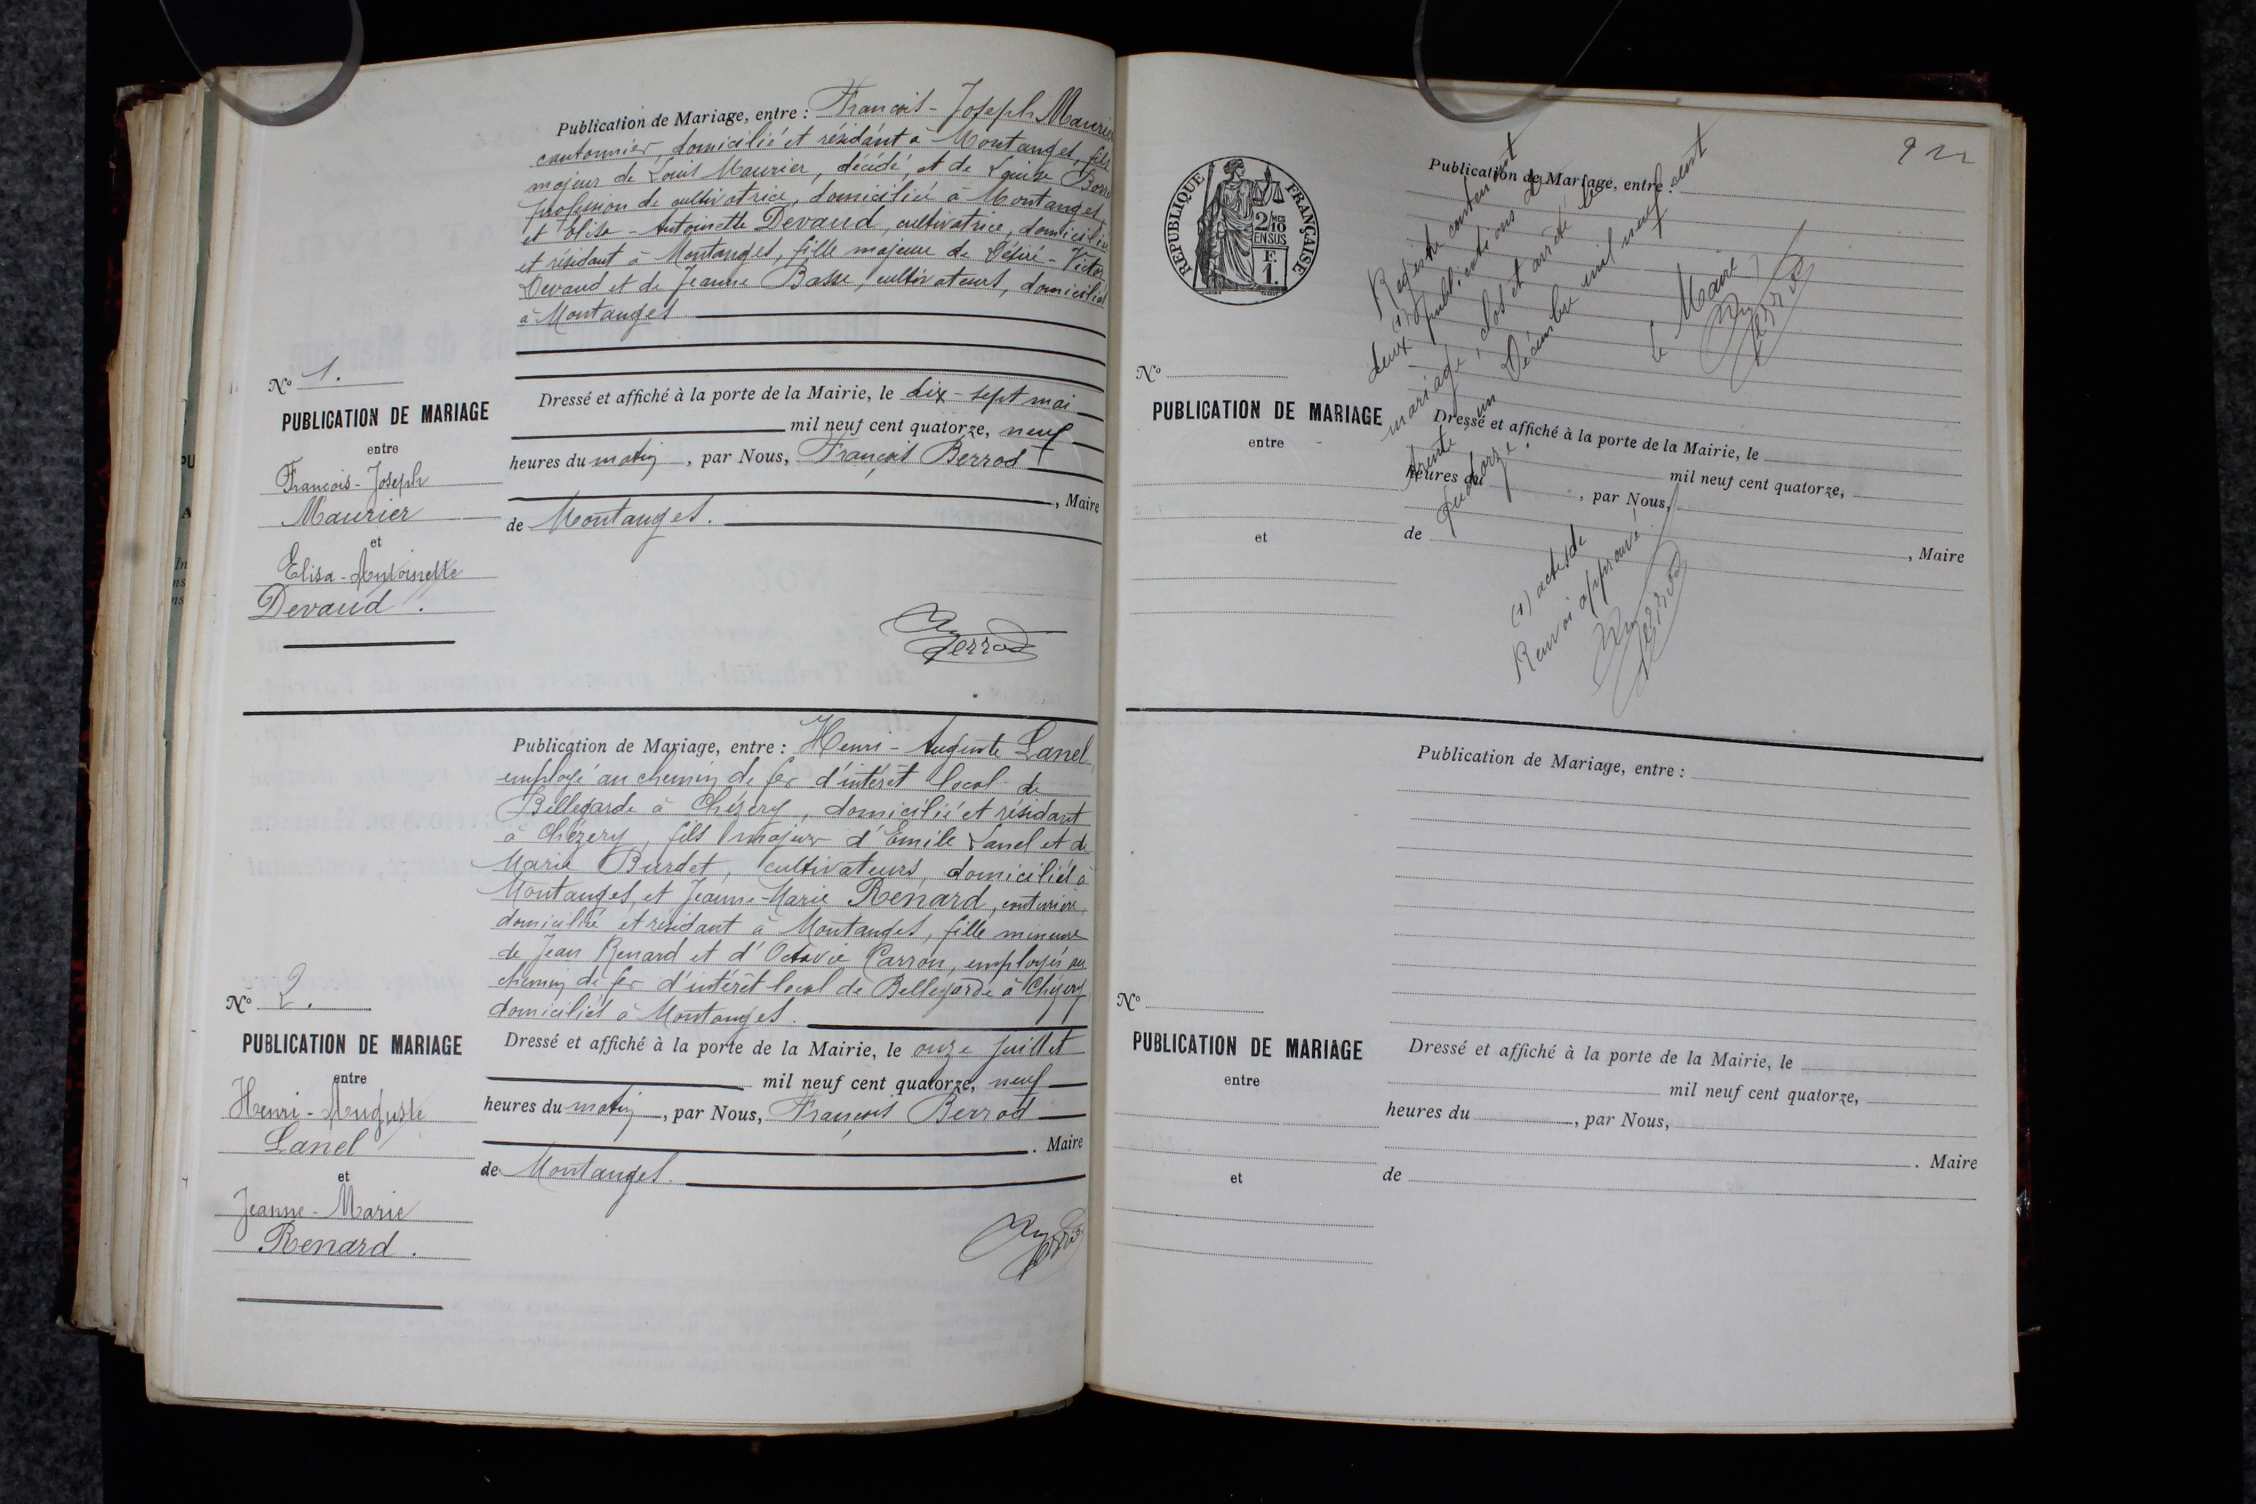 Publication de Mariage, entre : François-Joseph Maurier
cantonnier, domicilié et résidant à Montanges, fils
majeur de Louis Maurier, décédé, et de Louise
profession de cultivatrice, domiciliée à Montanges,
et Elisa-Antoinette Devaud, cultivatrice, domiciliée
et résidant à Montanges, fille majeure de Désiré-Victor
Devaud et de Jeanne Basse, cultivateurs, domiciliés
à Montanges
N° 1.
PUBLICATION DE MARIAGE
entre
François-Joseph
Maurier
et
Elisa-Antoinette
Devaud.
Dressé et affiché à la porte de la Mairie, le dix-sept mai
mil neuf cent quatorze, neuf
heures du matin, par Nous, François Berrod
, Maire
de Montanges.
Berrod
Publication de Mariage, entre : Henri-Auguste Lanel,
employé au chemin de fer d'intérêt local de
Bellegarde à Chézery, domicilié et résidant
à Chézery, fils majeur d'Emile Lanel et de
Marie Burdet, cultivateurs, domiciliés à
Montanges, et Jeanne-Marie Renard, couturière,
domiciliée et résidant à Montanges, fille mineure
de Jean Renard et d'Octavie Carron, employés au
chemin de fer d'intérêt local de Bellegarde à Chézery
domiciliés à Montanges.
N° 2.
PUBLICATION DE MARIAGE
entre
Henri-Auguste
Lanel
et
Jeanne-Marie
Renard.
Dressé et affiché à la porte de la Mairie, le onze juillet
mil neuf cent quatorze, neuf
heures du matin, par Nous, François Berrod
. Maire
de Montanges.
Berrod
RÉPUBLIQUE FRANÇAISE
2/10
EN SUS
F.
1.
Publication de Mariage, entre :
Registre contenant
deux (1) publications de
mariage, clos et arrêté le
trente un Décembre mil neuf cent
quatorze.
Le Maire
Berrod
(1) actes de
Renvoi approuvé
Berrod
N°
PUBLICATION DE MARIAGE
entre
et
Dressé et affiché à la porte de la Mairie, le
mil neuf cent quatorze,
heures du , par Nous,
, Maire
de
Publication de Mariage, entre :
N°
PUBLICATION DE MARIAGE
entre
et
Dressé et affiché à la porte de la Mairie, le
mil neuf cent quatorze,
heures du , par Nous,
. Maire
de